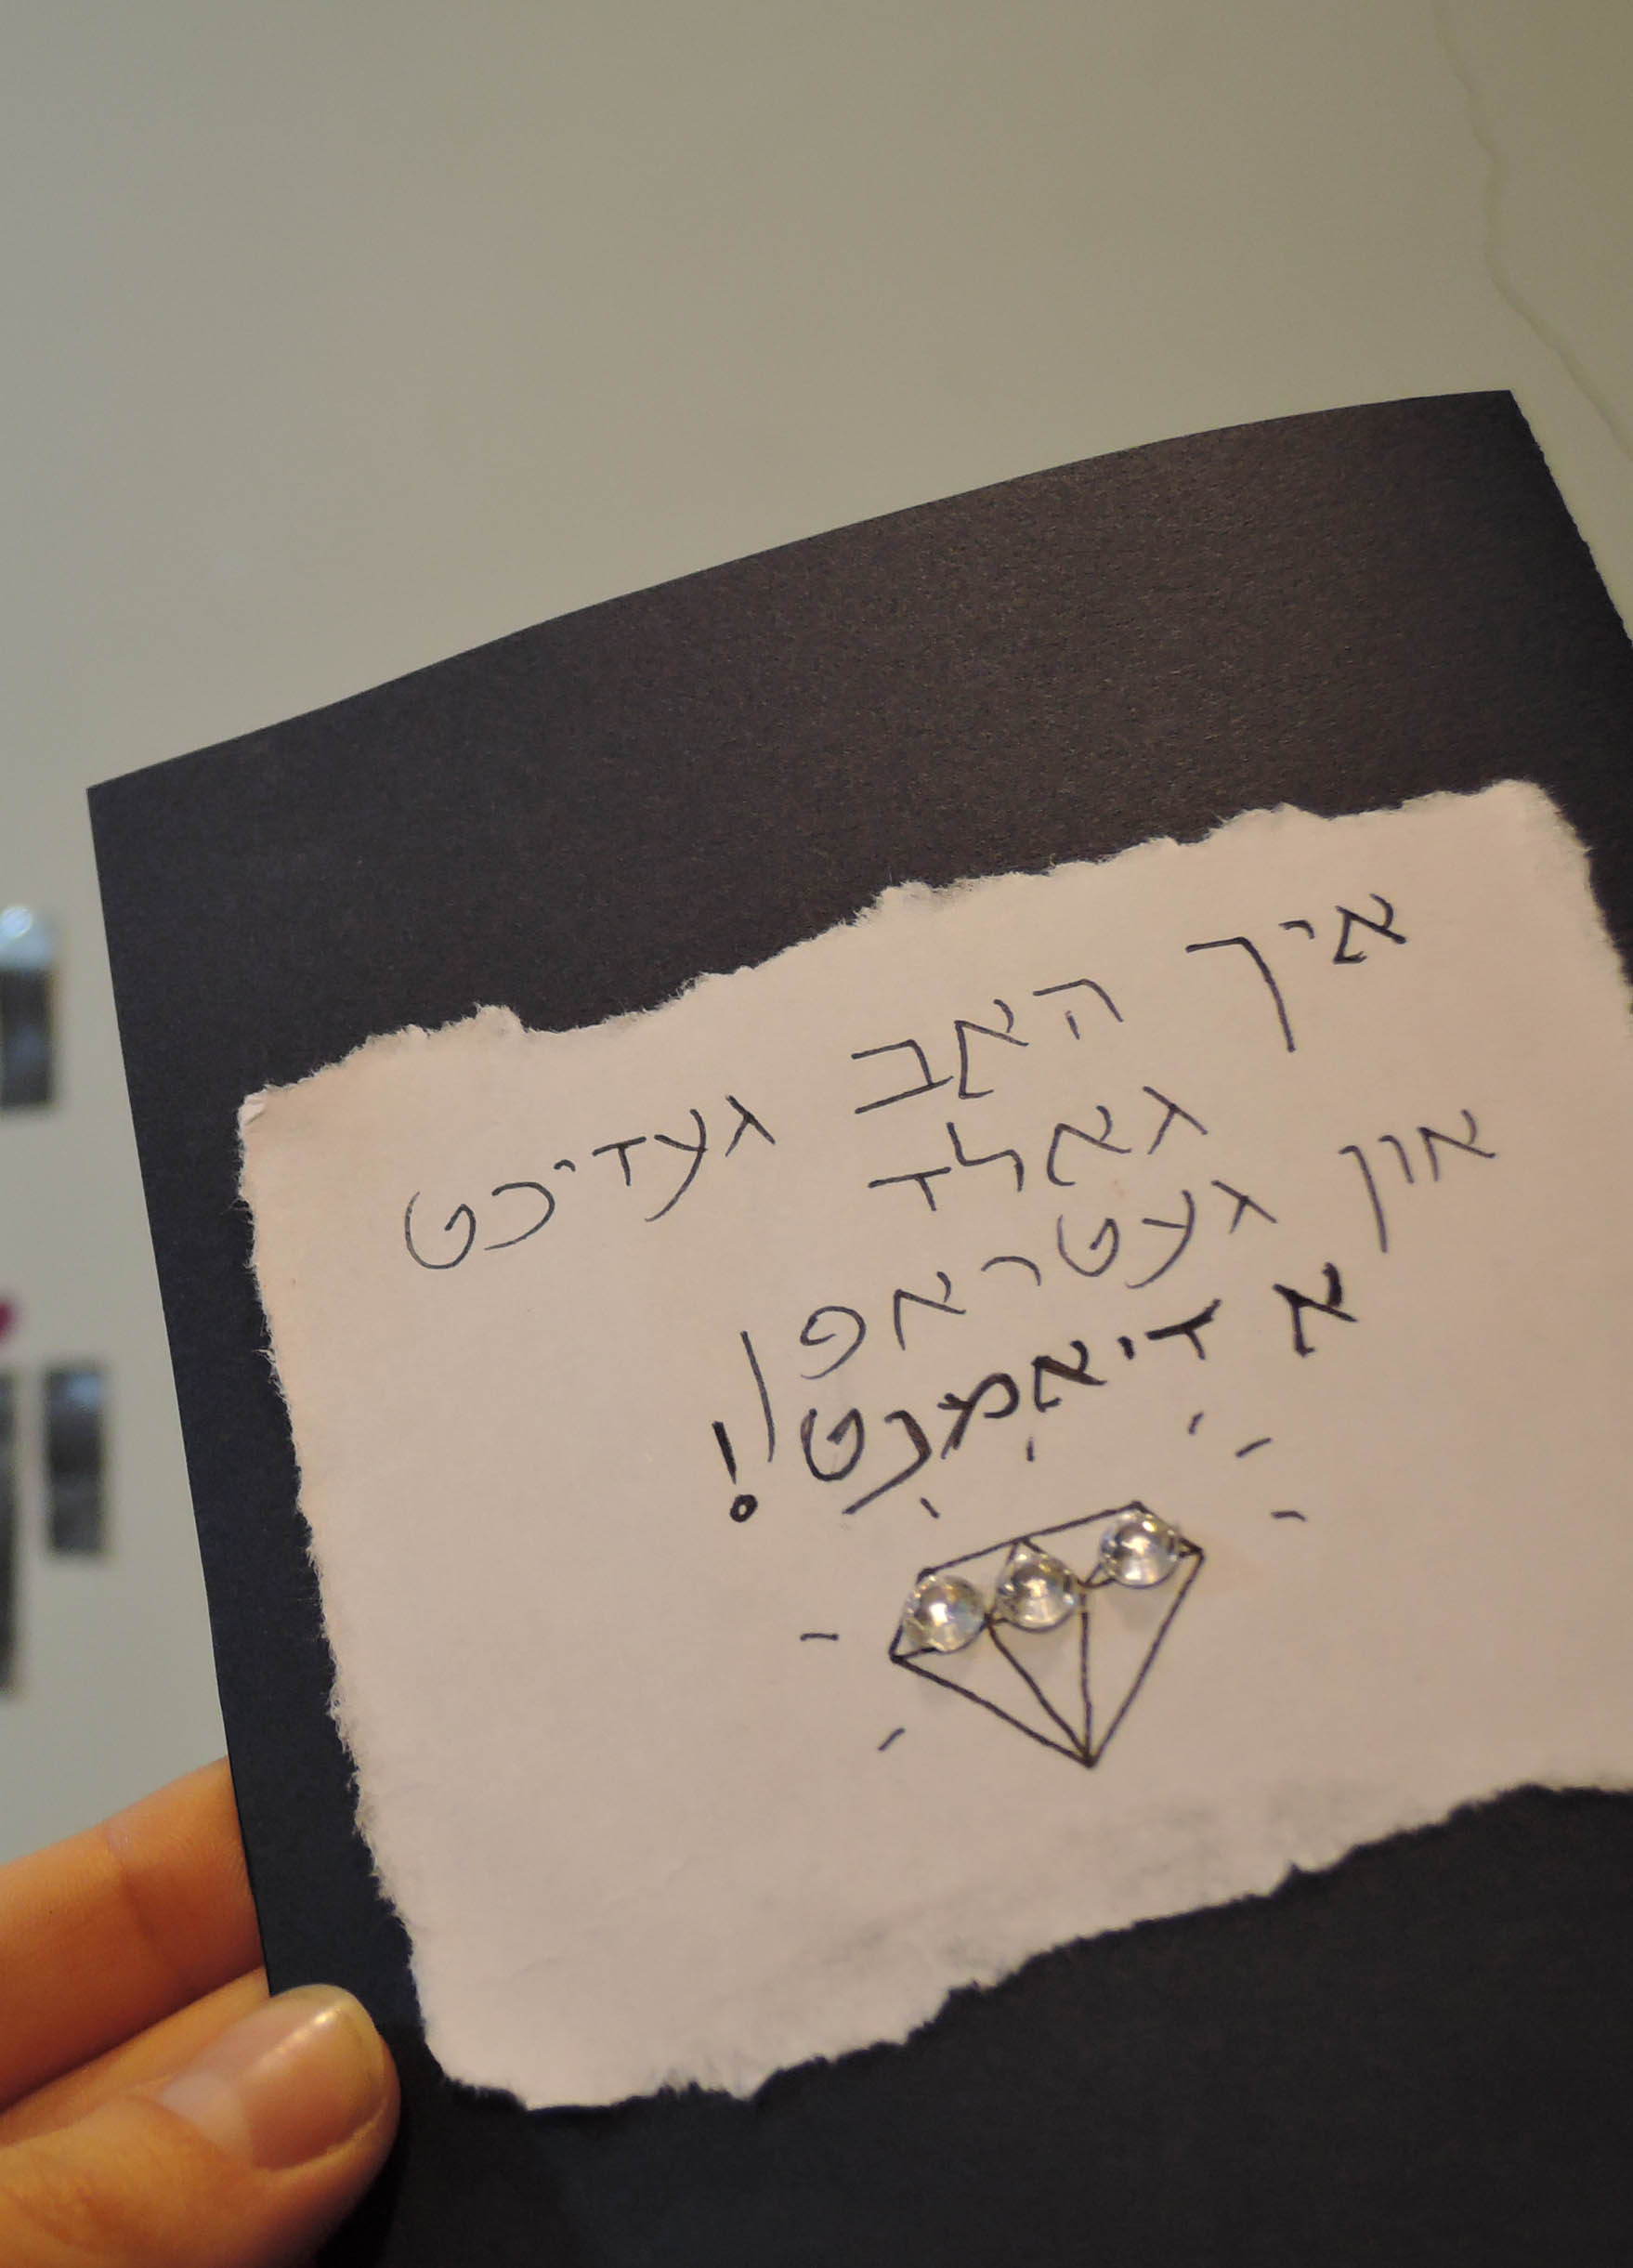 איך האב געזיכט
גאלד
און געטראפן
א דיאמענט!